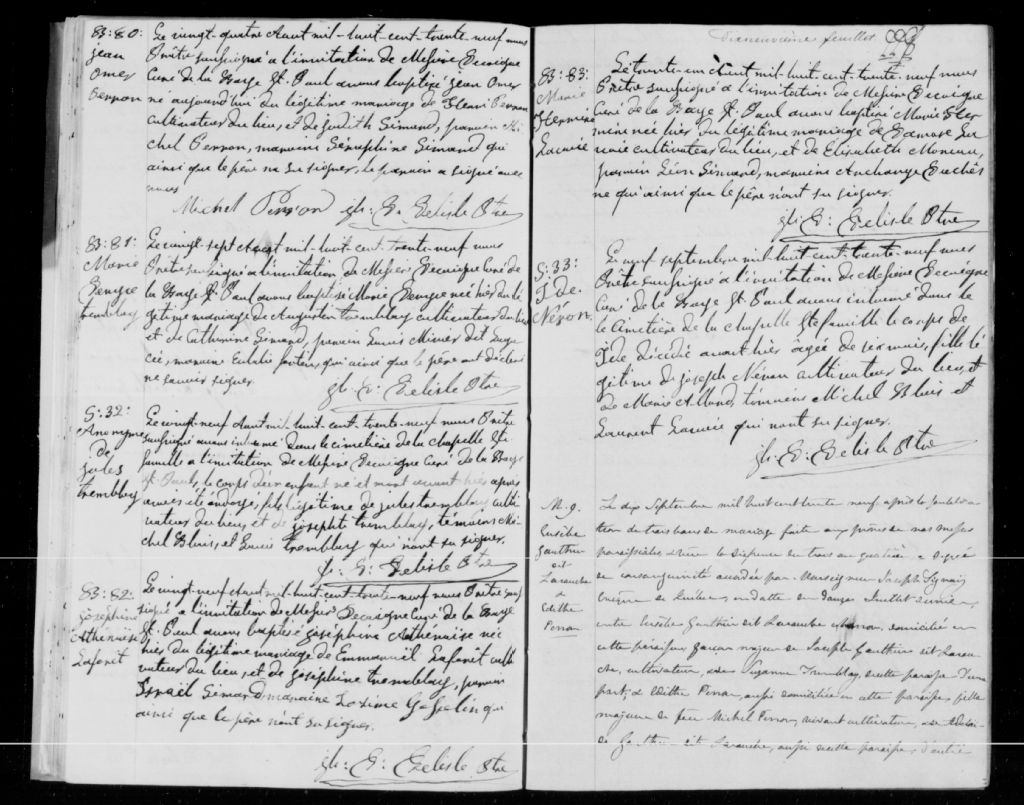 B:80:
jean
Omer
Perron
Le vingt-quatre Aout mil-huit-cent-trente-neuf nous
Prêtre soussigné à l'invitation de Messire Decoigne
Curé de la Baye St. Paul avons baptisé jean Omer
né aujourd'hui du légitime mariage de Henri Perron
cultivateur du lieu, et de judith Simard, parrein Mi
chel Perron, marraine Séraphine Simard qui
ainsi que le père na su signer, le parrein a signé avec
nous
Michel Perron gh: D: Delisle Ptre
B:81:
Marie
tremblay
Le vingt-sept Aout mil-huit-cent-trente-neuf nous
Prêtre soussigné a l'invitation de Messire Decoigne Curé de
la Baye St. Paul avons baptisé Marie née hier du lé
gitime mariage de Augustin tremblay cultivateur du lieu
et de Catherine Simard, parrein Louis dit
marraine qui ainsi que le père ont déclaré
ne savoir signer.
gh: D: Delisle Ptre
S:32:
Anonyme
de
jules
tremblay
Le vingt-neuf Aout mil-huit-cent-trente-neuf nous Prêtre
soussigné avons inhumé dans le cimetière de la chapelle Ste
famille a l'invitation de Messire Decoigne Curé de la Baye
St. Paul, le corps d'un enfant né et mort avant hier après
avoir été ondoyé, fils légitime de jules tremblay culti
vateur du lieu, et de josephte tremblay, témoins Mi
chel Bluis, et Louis tremblay qui n'ont su signer.
gh: D: Delisle Ptre
B:82:
josephine
Athénaïse
Laforêt
Le vingt-neuf Aout mil-huit-cent-trente-neuf nous Prêtre sous
signé a l'invitation de Messire Decoigne Curé de la Baye
St. Paul avons baptisé joséphine Athénaïse née
hier du légitime mariage de Emmanuel Laforêt culti
vateur du lieu, et de joséphine tremblay, parrein
Israël Simard marraine Gosselin qui
ainsi que le père n'ont su signer.
gh: D: Delisle Ptre
Dixneuvième feuillet.
B:83:
Marie
Hermine
Lavoie
Le trente-un Aout mil-huit-cent-trente-neuf nous
Prêtre soussigné a l'invitation de Messire Decoigne
Curé de la Baye St. Paul avons baptisé Marie Her
mine née hier du légitime mariage de La
voie cultivateur du lieu, et de Elisabeth Moreau,
parrein Léon Simard, marraine Archange Duchês
ne qui ainsi que le père n'ont su signer.
gh: D: Delisle Ptre
S:33:
Ide
Néron.
Le neuf septembre mil-huit-cent-trente-neuf nous
Prêtre soussigné a l'invitation de Messire Decoigne
Curé de la Baye St. Paul avons inhumé dans le
le Cimetière de la Chapelle Ste famille le corps de
Ide décédé avant hier âgée de mois, fille lé
gitime de joseph Néron cultivateur du lieu, et
de Marie Allard, témoins Michel Bluis et
Laurent Lavoie qui n'ont su signer.
gh: D: Delisle Ptre
M. 9.
Eusèbe
Gauthier
dit
Larouche
&
Edithe
Perron
Le dix Septembre mil huit cent trente neuf après la publica
tion de trois bans de mariage faite aux prônes de nos messes
paroissiales & vû la dispense du trois au quatrième degré
de consanguinité accordée par Monseigneur Joseph Signaÿ
Evêque de Québec, en datte du douze Juillet dernier,
entre Eusèbe Gauthier dit Larouche domicilié en
cette paroisse, garçon majeur de Joseph Gauthier dit Larou
che, cultivateur, & de Suzanne Tremblay, de cette paroisse d'une
part, & Edithe Perron, aussi domiciliée en cette paroisse, fille
majeure de feu Michel Perron, vivant cultivateur, & de
de Gauthier dit Larouche, aussi de cette paroisse, d'autre